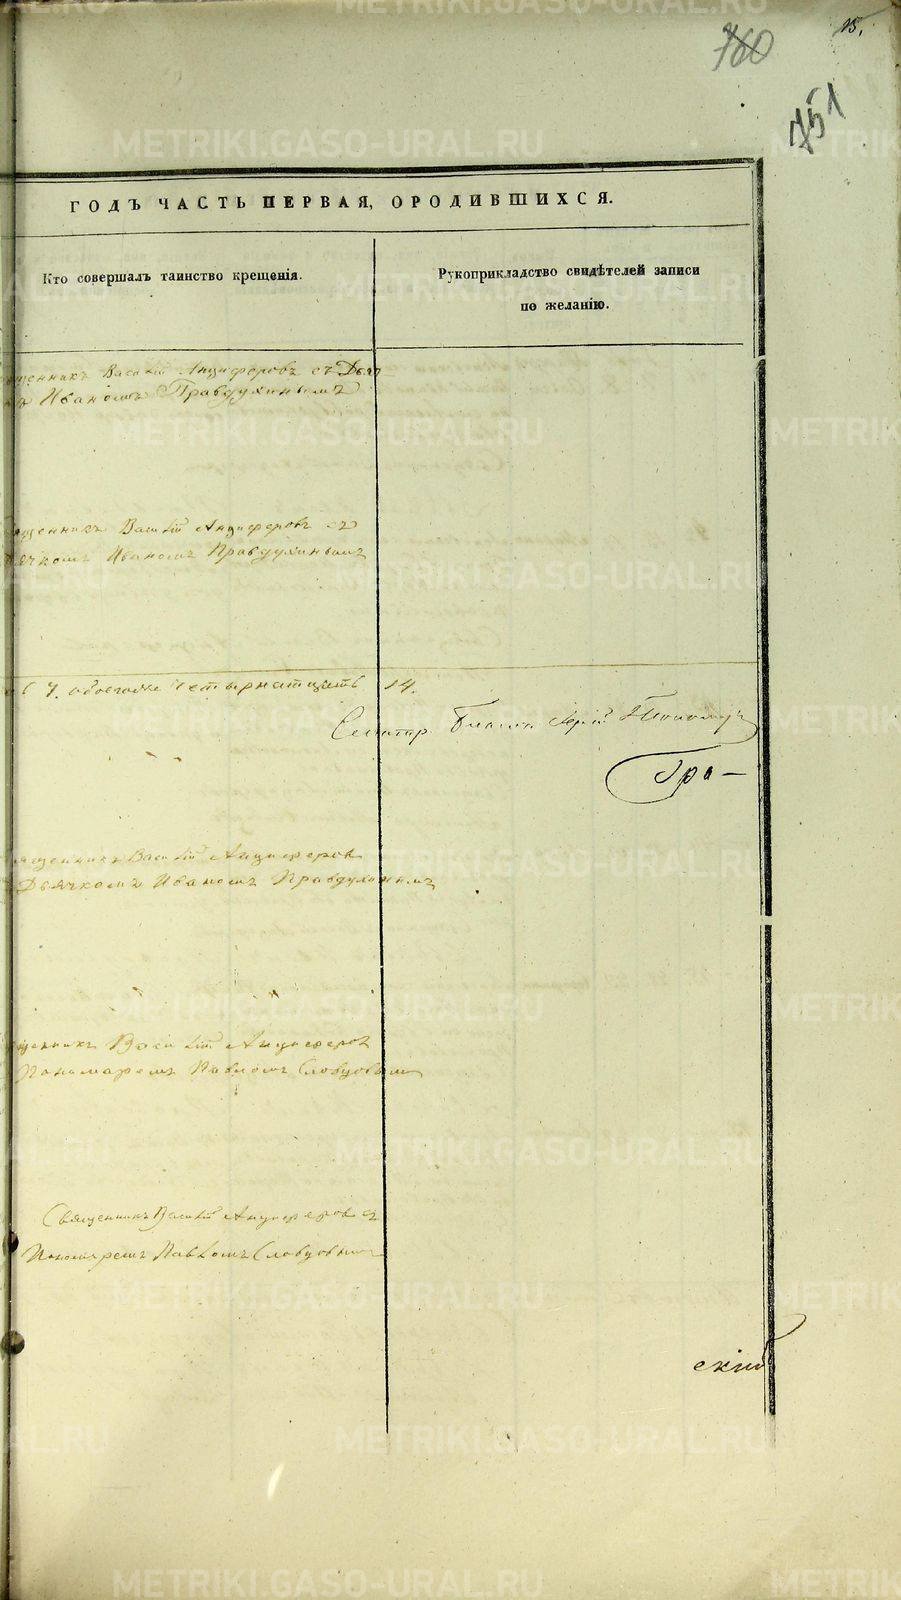 15.
760
751
ГОДЪ ЧАСТЬ ПЕРВАЯ, ОРОДИВШИХСЯ.
Кто совершалъ таинство крещенія.
Рукоприкладство свидѣтелей записи
по желанію.
щенникъ Василій Анциферовъ съ Дьяч
Иваномъ Правдухинымъ
щенникъ Василій Анциферовъ съ
ячкомъ Иваномъ Правдухинымъ
7. обоего четырнатцать 14.
Гра-
ященникъ Василій Анциферов
Дьячкомъ Иваномъ Правдухинымъ
щенникъ Василій Анциферов
Панамаремъ Павломъ Словцовым
Священникъ Василій Анциферов съ
Понамаремъ Павломъ Словцовым
скій
METRIKI.GASO-URAL.RU